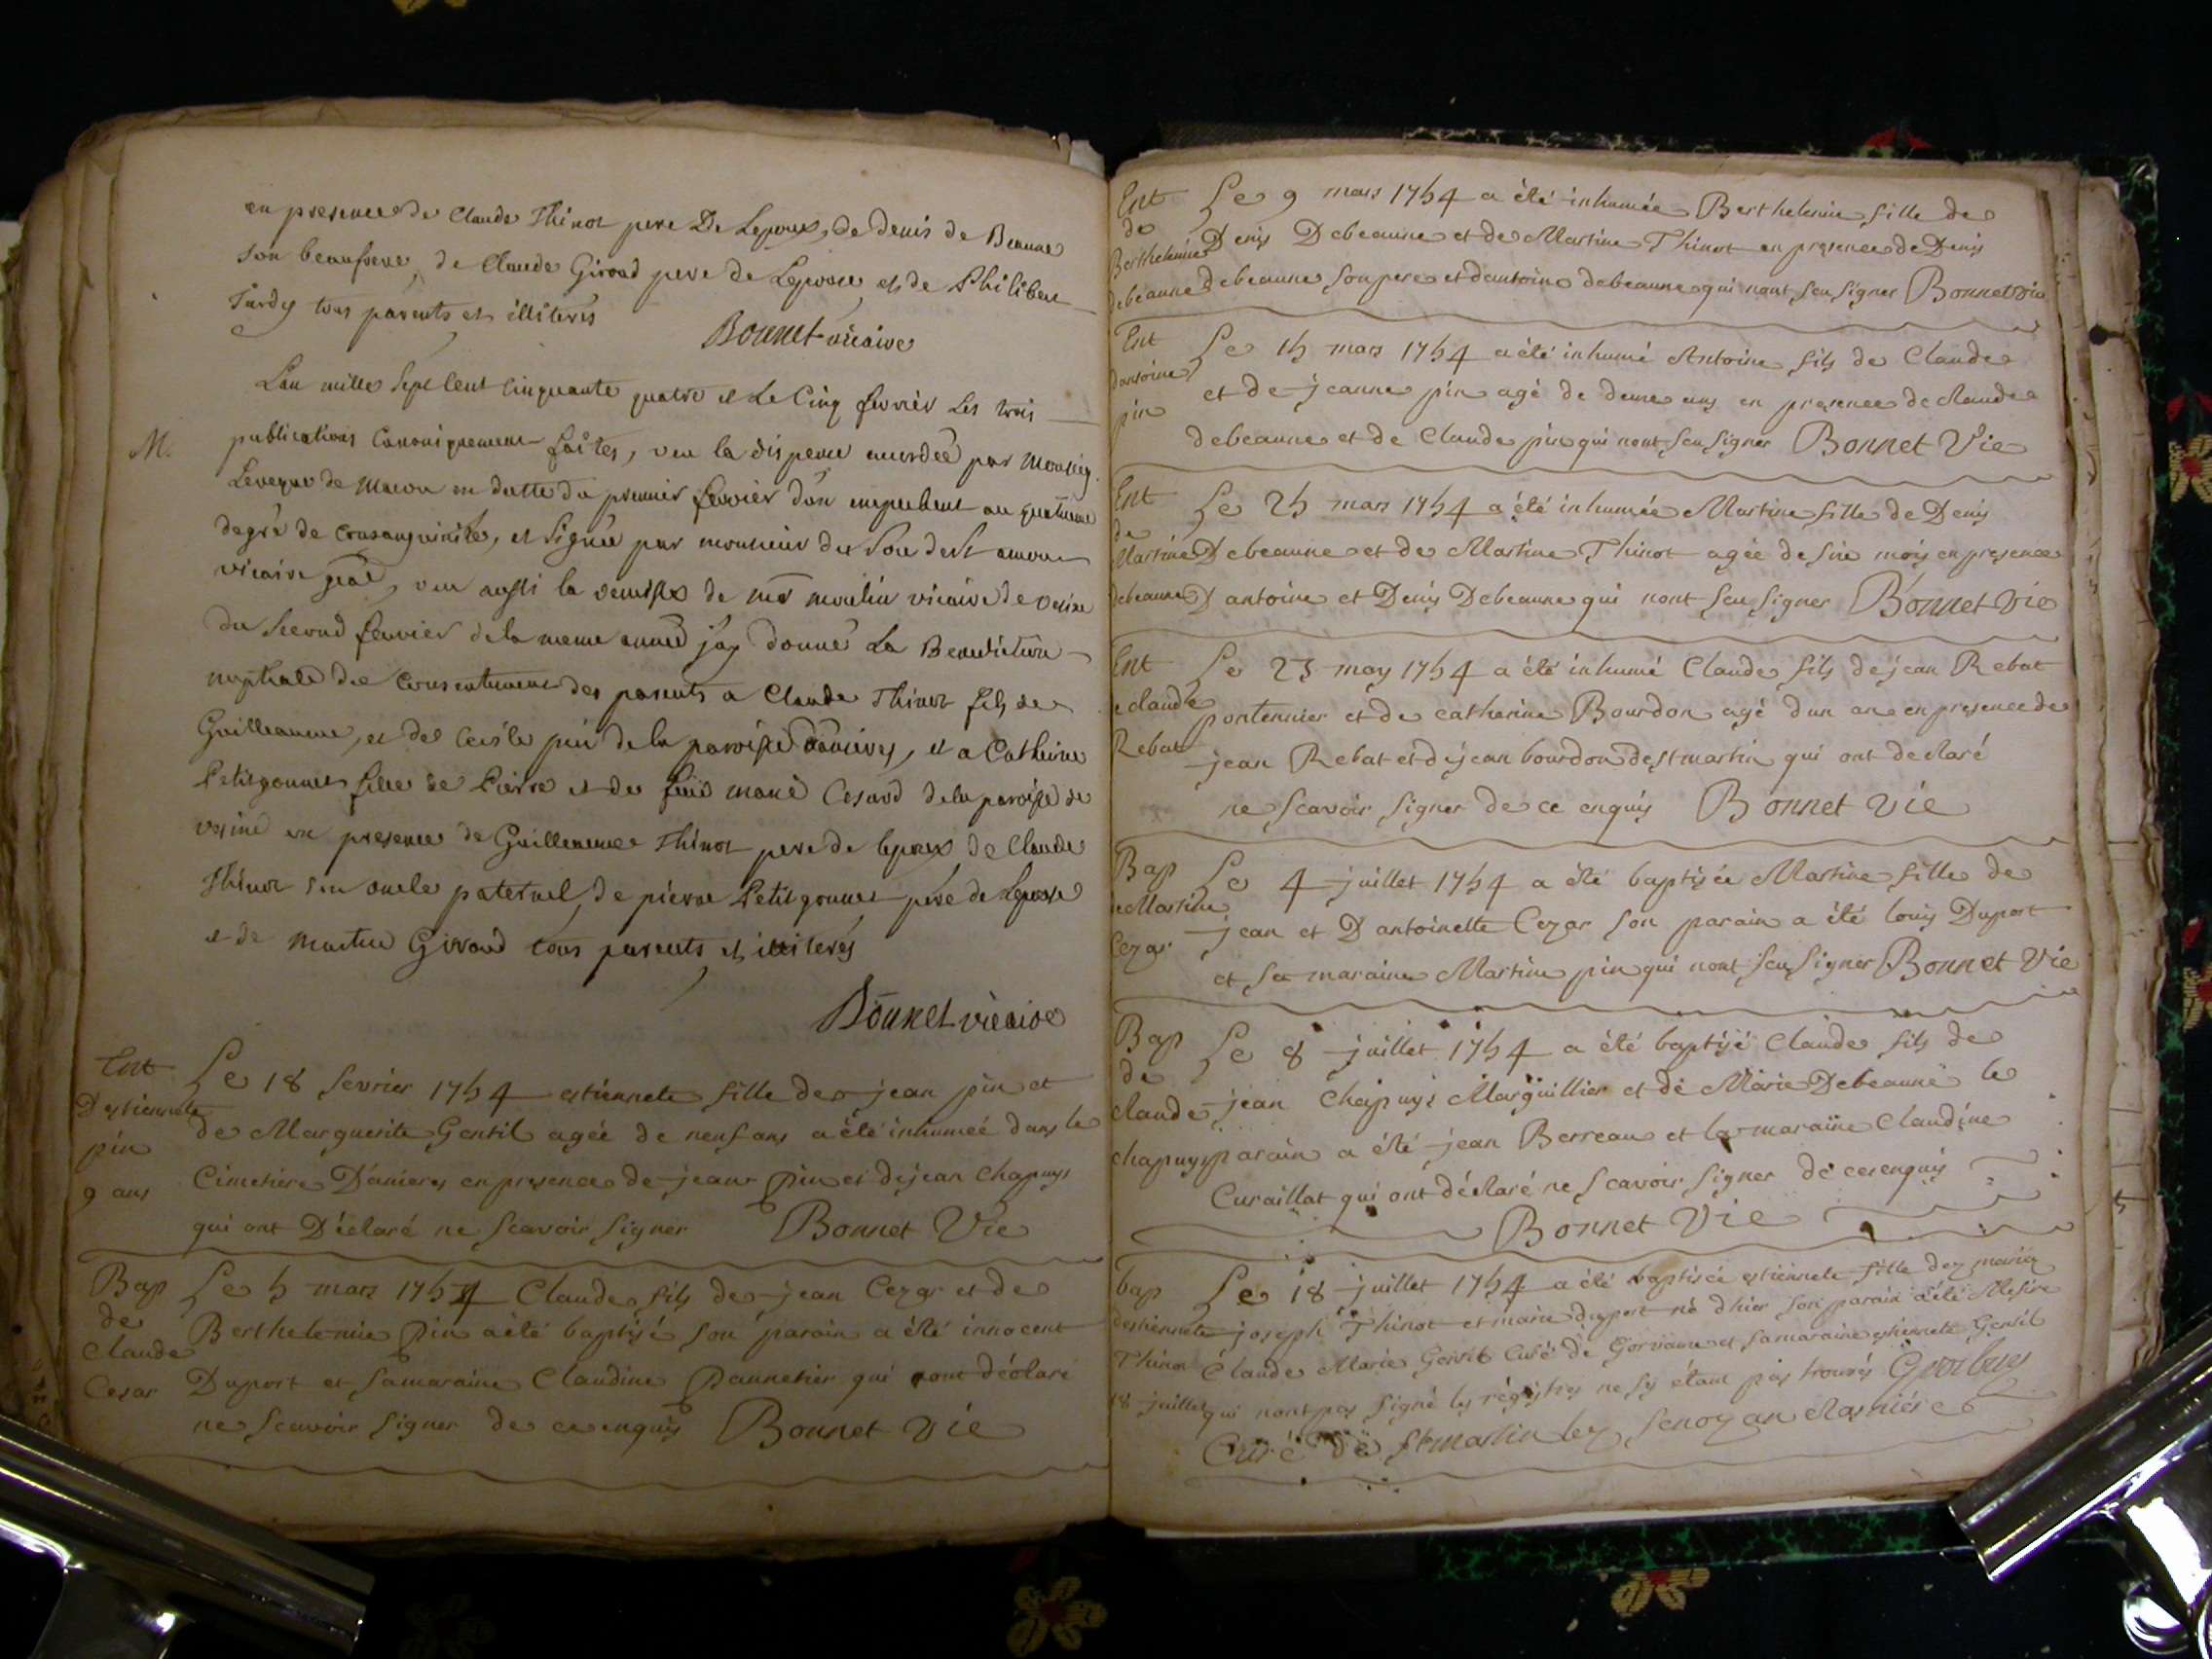 en presence de Claude Thinot pere De Lepoux, de denis de Beaune
son beaufrere, de Claude Giroud pere de Lepouse et de Philibert
Tardy tous parents et illiterés
Bonnet vicaire
M.
Lan mille Sept Cent Cinquante quatre et Le Cinq fevrier Les trois
publications Canoniquement faites, veu la dispence accordée par Monseig.
Leveque de Macon en datte du premier fevrier d'un empechent au quatrieme
degré de Consanguinité, et Signée par monsieur de
vicaire gñal, veu aussi la remise de mr moulin vicaire de vesine
du Second fevrier de la meme année j'ay donné La Benediction
nuptiale du Consentement des parents a Claude Thinot fils de
Guilleaume, et de Cecile pin de la paroisse d'anieres, et a Catherine
Petitgonnet fille de Pierre et de füe marie Cesard de la paroisse de
vesine en presence de Guilleaume Thinot pere de lepoux de Claude
Thinot son oncle paternel, de pierre Petitgonnet pere de Lepouse
et de Giroud tous parents et illiterés
Bonnet vicaire
Ent
Destiennete
pin
9 ans
Le 18 fevrier 1754 estiennete fille de jean pin et
de Marguerite Gentil agée de neuf ans a été inhumée dans le
Cimetiere D'anieres en presence de jean pin et de jean Chapuys
qui ont Déclaré ne Scavoir Signer Bonnet Vic
Bap
de
Claude
Cesar
Le 5 mars 1754 Claude fils de jean Cezar et de
Berthelemie Pin a été baptisé son parain a été innocent
Duport et sa maraine Claudine Pannetier qui ont déclaré
ne Scavoir Signer de ce enquis Bonnet Vic
Ent
de
Berthelemie
debeaune
Le 9 mars 1754 a été inhumée Berthelemie fille de
Denis Debeaune et de Martine Thinot en presence de Denis
debeaune son pere et dantoine debeaune qui nont seu signer Bonnet vic
Ent
dantoine
pin
Le 15 mars 1754 a été inhumé Antoine fils de Claude
et de jeanne pin agé de deux ans en presence de claude
debeaune et de Claude pin qui nont seu signer Bonnet Vic
Ent
de
Martine
debeaune
Le 25 mars 1754 a été inhumée Martine fille de Denis
Debeaune et de Martine Thinot agée de six mois en presence
D antoine et Denis Debeaune qui nont seu signer Bonnet Vic
Ent
de claude
Rebat
Le 23 may 1754 a été inhumé Claude fils de jean Rebat
pontennier et de catherine Bourdon agé dun an en presence de
jean Rebat et de jean bourdon de st martin qui ont declaré
ne scavoir signer de ce enquis Bonnet Vic
Bap
de Martine
Cezar
Le 4 juillet 1754 a été baptisée Martine fille de
jean et D antoinette Cezar son parain a été louis Duport
et sa maraine Martine pin qui nont seu signer Bonnet Vic
Bap
de
claude
chapuys
Le 8 juillet 1754 a été baptisé Claude fils de
jean Chapuys Marguillier et de Marie Debeaune le
parain a été jean Berreau et la maraine Claudine
Curaillat qui ont déclaré ne scavoir signer de ce enquis
Bonnet Vic
bap
destiennete
Thinot
18 juillet
Le 18 juillet 1754 a été baptisée estiennete fille des mariez
joseph Thinot et marie duport né dhier son parain a été Messire
Claude Marie Gentil Curé de Gorrevau et sa maraine estiennete Gentil
qui nont pas signé les régistres ne sy étant pas trouvés
Curé de st martin lez Senozan et asniére